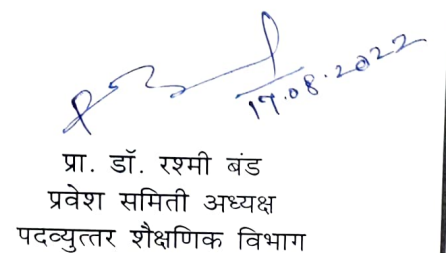 17.08.2022
प्रा. डॉ. रश्मी बंड
प्रवेश समिती अध्यक्ष
पदव्युत्तर शैक्षणिक विभाग